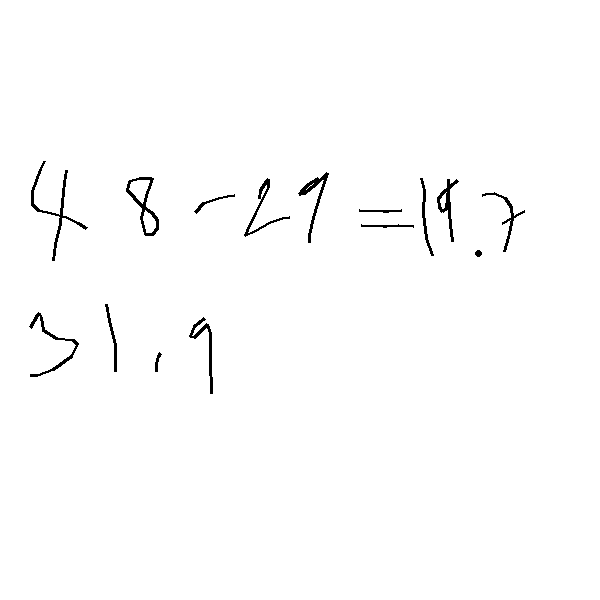 48-29=19.7
31.9